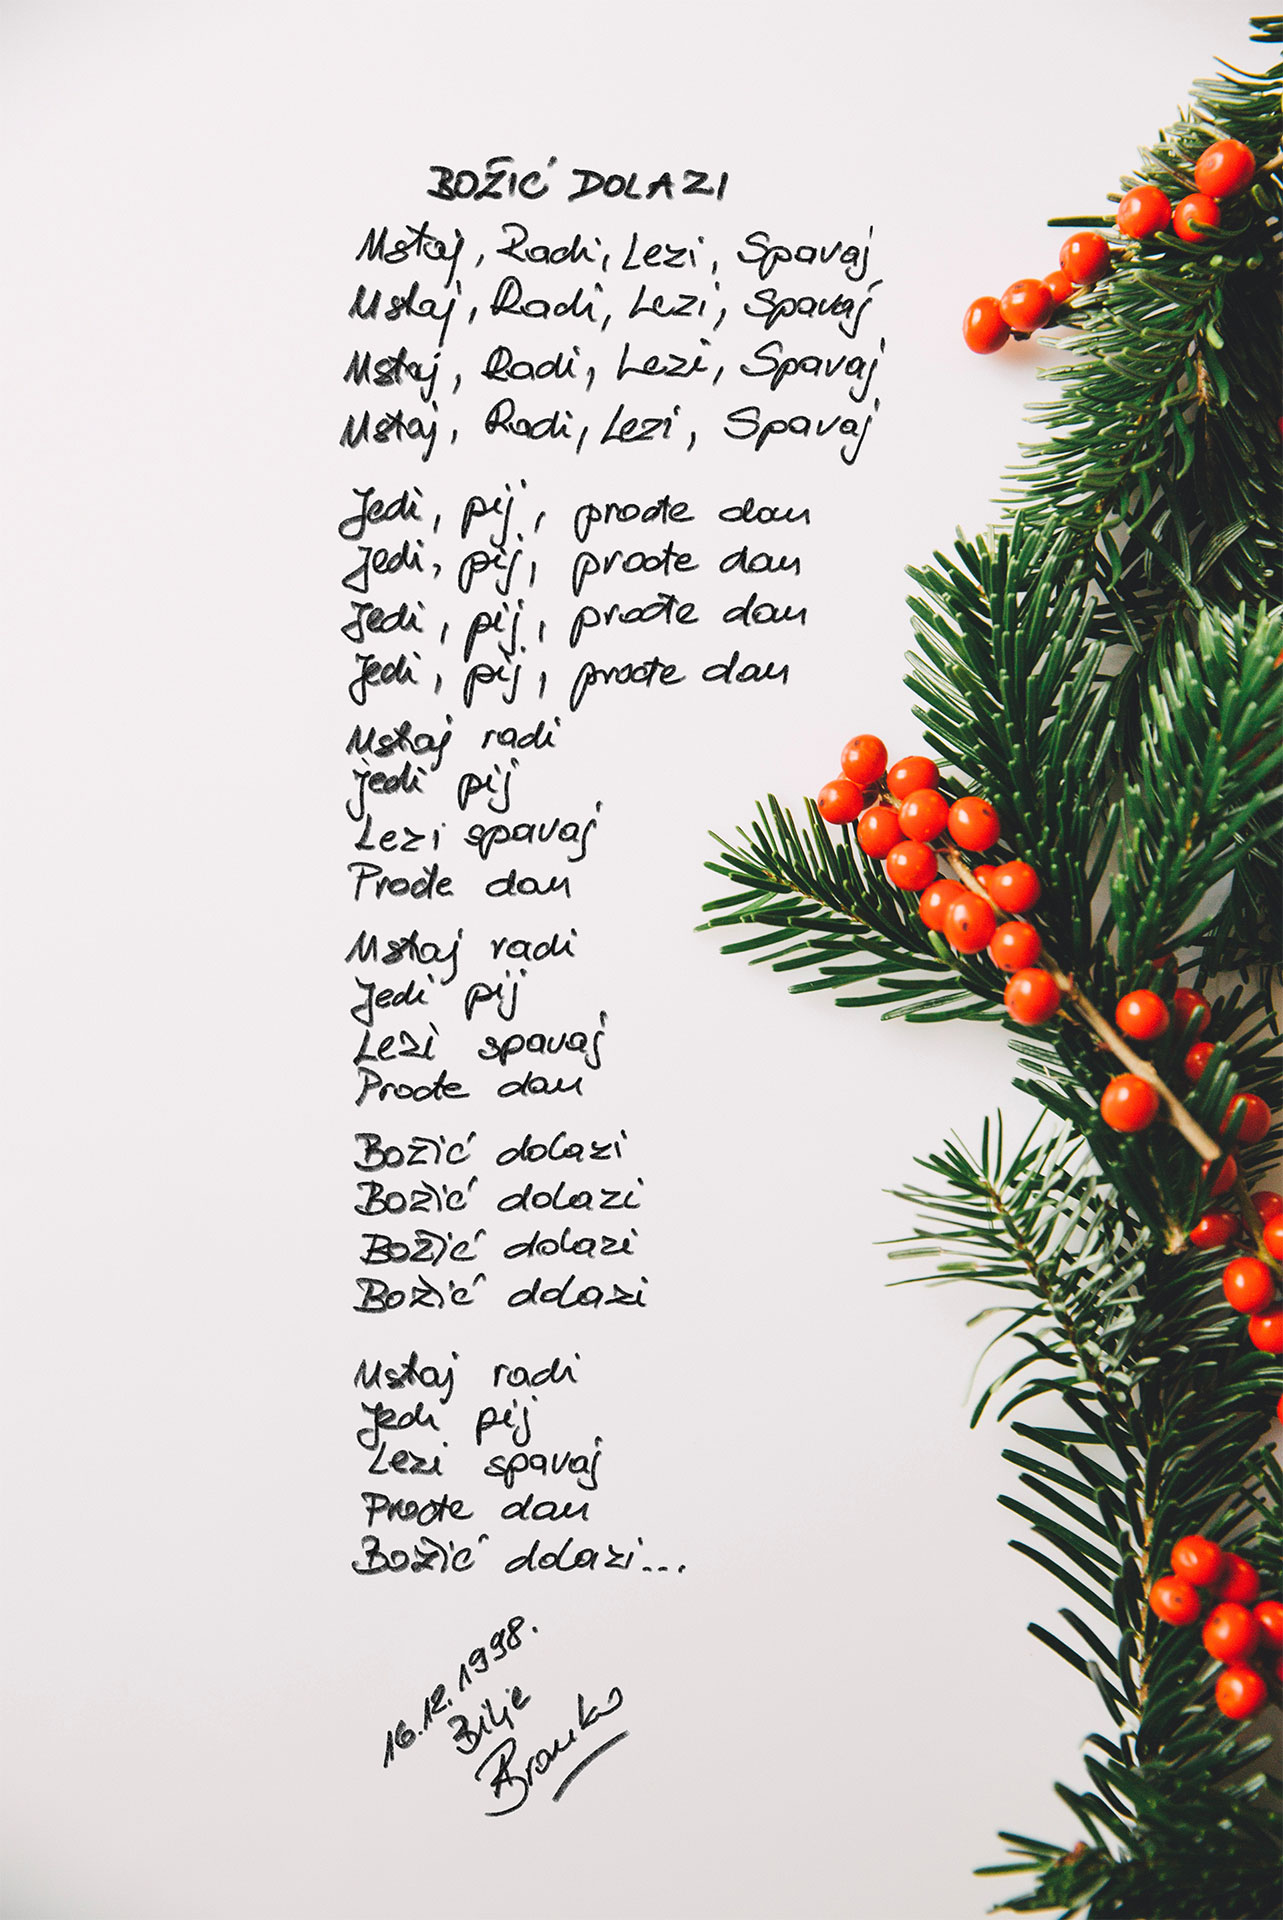 BOŽIĆ DOLAZI
Ustaj, Radi, Lezi, Spavaj
Ustaj, Radi, Lezi, Spavaj
Ustaj, Radi, Lezi, Spavaj
Ustaj, Radi, Lezi, Spavaj
Jedi, pij, prođe dan
Jedi, pij, prođe dan
Jedi, pij, prođe dan
Jedi, pij, prođe dan
Ustaj radi
jedi pij
Lezi spavaj
Prođe dan
Ustaj radi
Jedi pij
Lezi spavaj
Prođe dan
Božić dolazi
Božić dolazi
Božić dolazi
Božić dolazi
Ustaj radi
Jedi pij
Lezi spavaj
Prođe dan
Božić dolazi...
16.12.1998.
Bilje
Branko